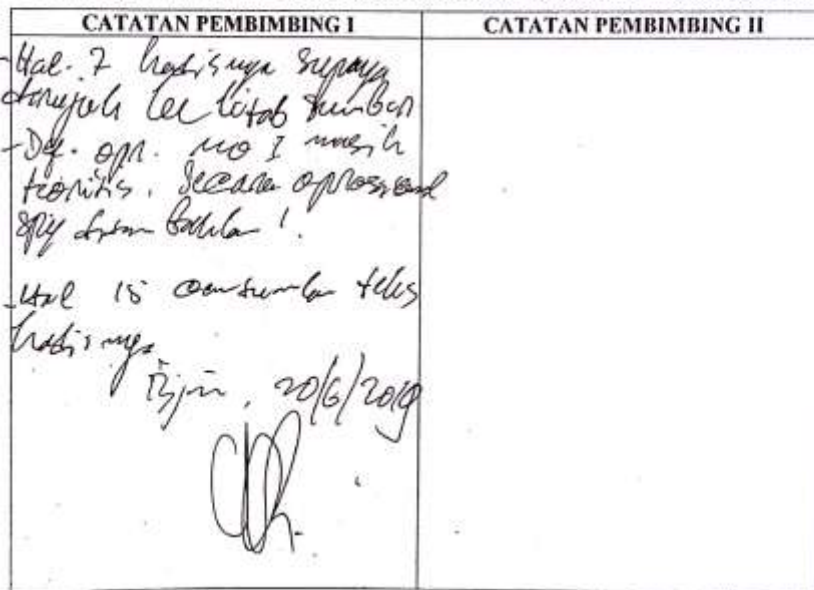 CATATAN PEMBIMBING I
CATATAN PEMBIMBING II
-Hal. 7 hadisnya supaya
dirujuk ke kitab sumber
-Def. opr. no I masih
teoritis. Secara oprasional
spy ditambahkan!
-Hal 15 cantumkan teks
hadisnya
Bjm, 20/6/2019